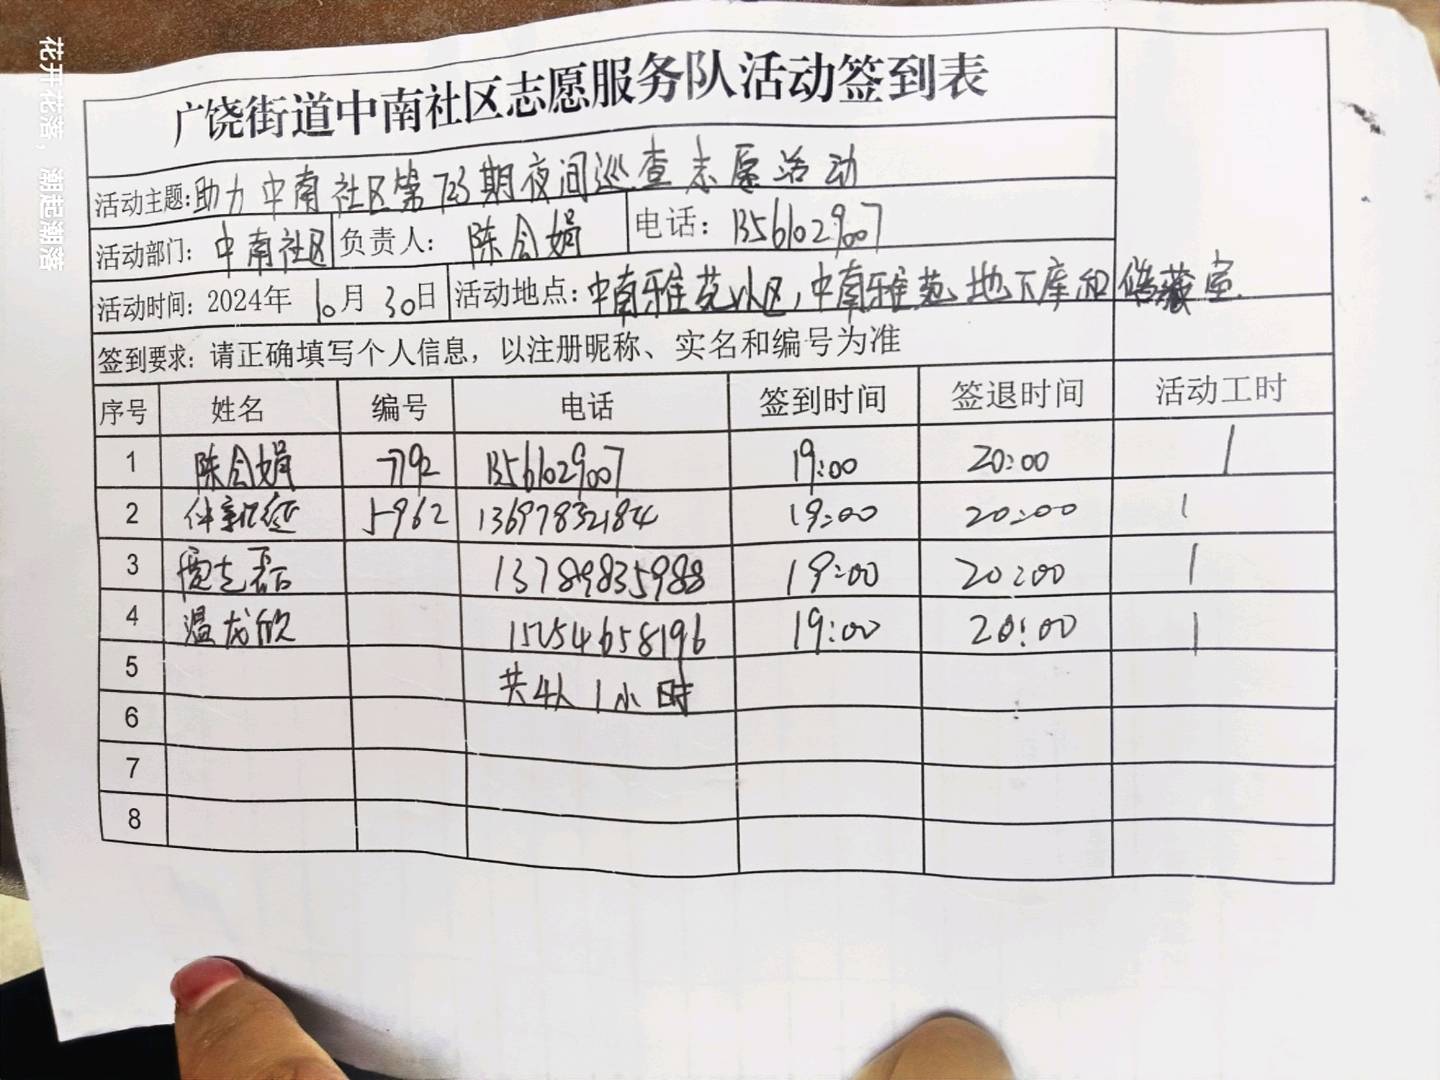 花开花落，潮起潮落
广饶街道中南社区志愿服务队活动签到表
活动主题: 助力中南社区第723期夜间巡查志愿活动
活动部门: 中南社区 负责人: 陈会娟 电话: 13561029007
活动时间: 2024年 10月 30日 活动地点: 中南雅苑小区，中南雅苑地下库和储藏室.
签到要求: 请正确填写个人信息，以注册昵称、实名和编号为准
序号 姓名 编号 电话 签到时间 签退时间 活动工时
1 陈会娟 7792 13561029007 19:00 20:00 1
2 5962 13697832184 19:00 20:00 1
3 13789835988 19:00 20:00 1
4 温龙欣 15254658196 19:00 20:00 1
5 共4人1小时
6
7
8